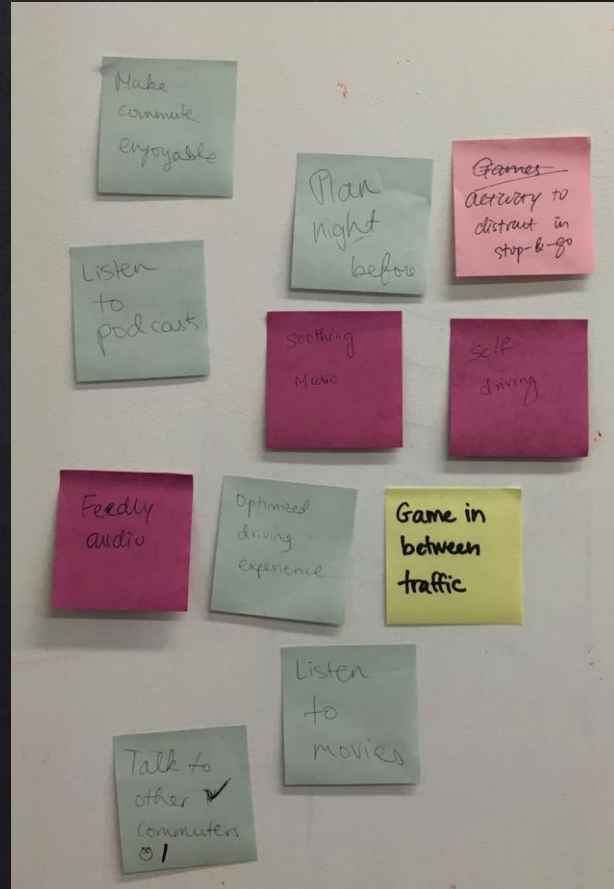 Make
commute
enjoyable
Plan
night
before
Games
activity to
distract in
stop-&-go
Listen
to
podcasts
soothing
Music
self
driving
Feedly
audio
Optimized
driving
experience
Game in
between
traffic
Listen
to
movies
Talk to
other ✓
Commuters